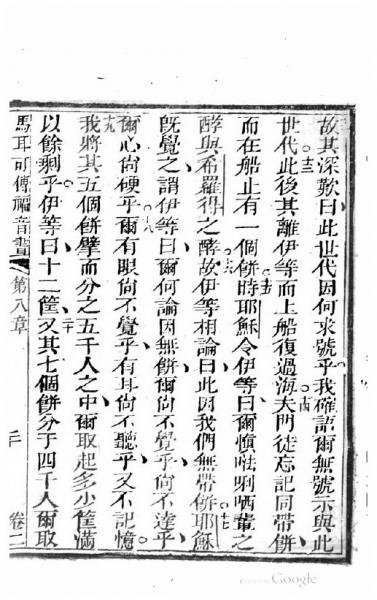 故其深歎曰此世代因何求號乎我確語爾無號示與此
十三 十四
世代此後其離伊等而上船復過海夫門徒忘記同帶餅
十五
而在船止有一個餅時耶穌令伊等曰爾慎唎哂輩之
十六 十七
酵與希羅得之酵故伊等相論曰此因我們無帶餅耶穌
既覺之謂伊等曰爾何論因無餅爾尚不覺乎尚不達乎
十八
爾心尚硬乎爾有眼尚不覺乎有耳尚不聽乎又不記憶
十九
我將其五個餅擘而分之五千人之中爾取起多少筐滿
二十
以餘剩乎伊等曰十二筐又其七個餅分于四千人爾取
馬耳可傳福音書 第八章 二 卷二
Google